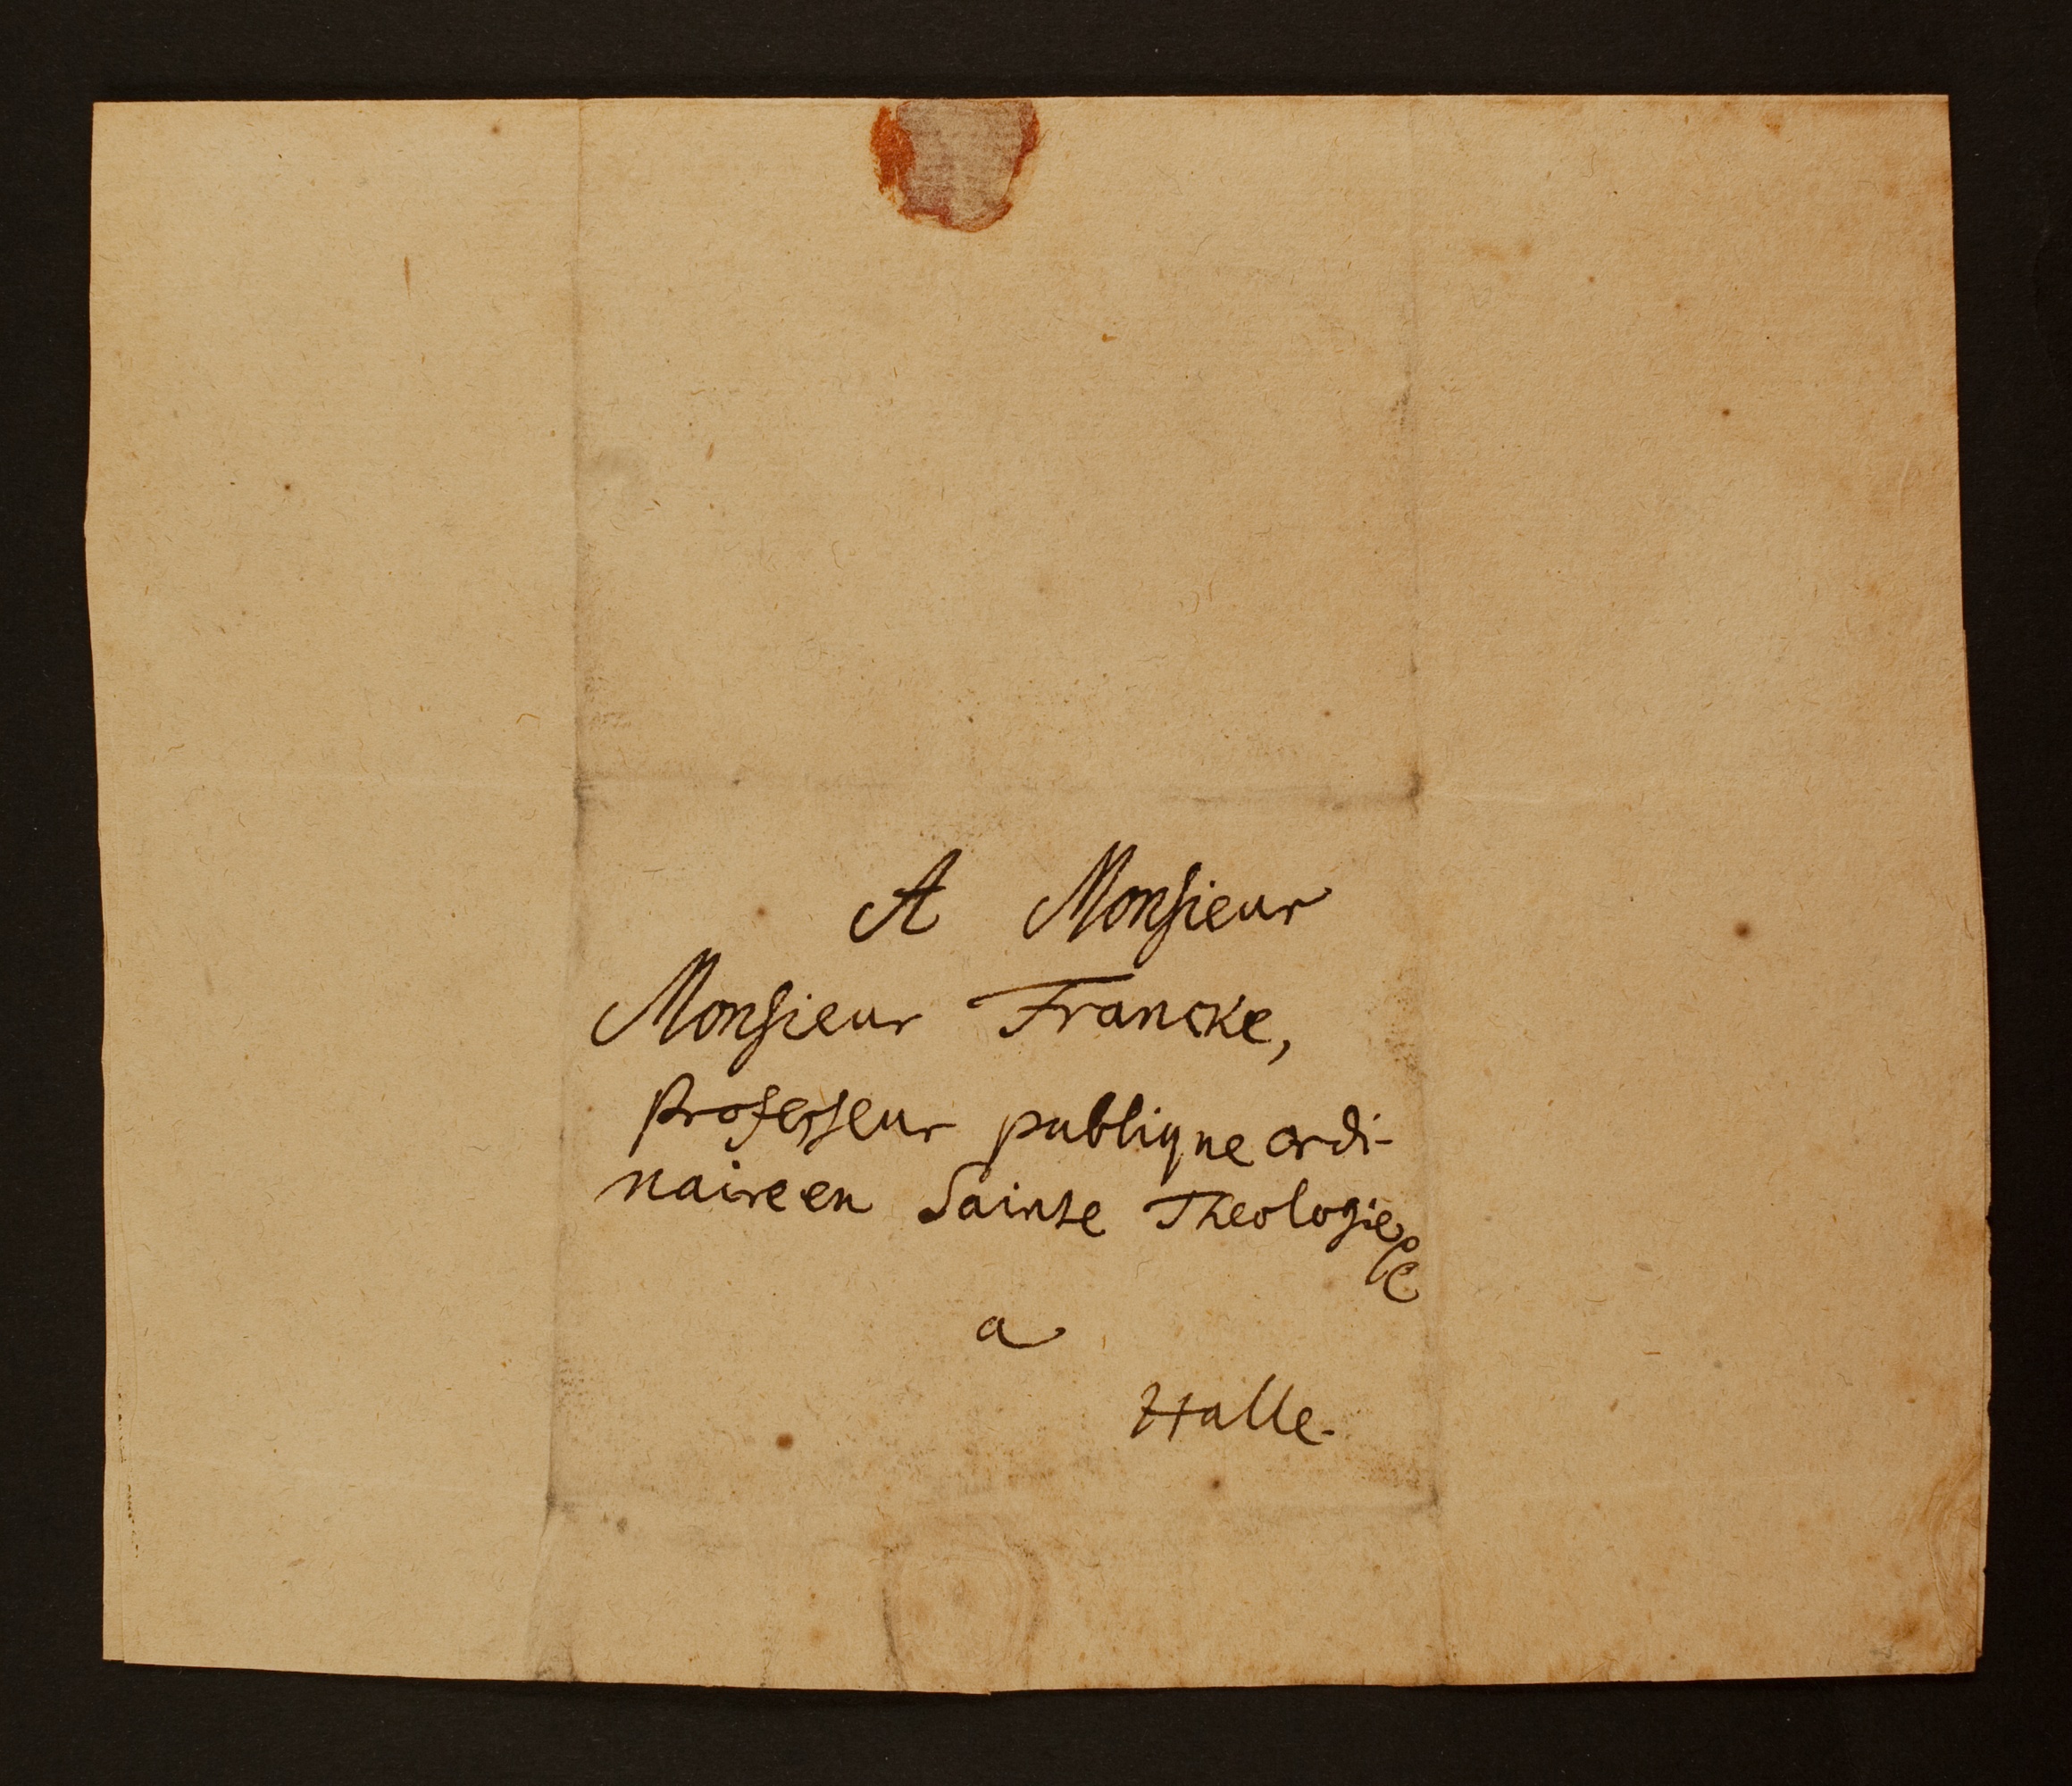 A Monsieur
Monsieur Francke,
Professeur publique ordi-
naire en Sainte Theologie
a
Halle.